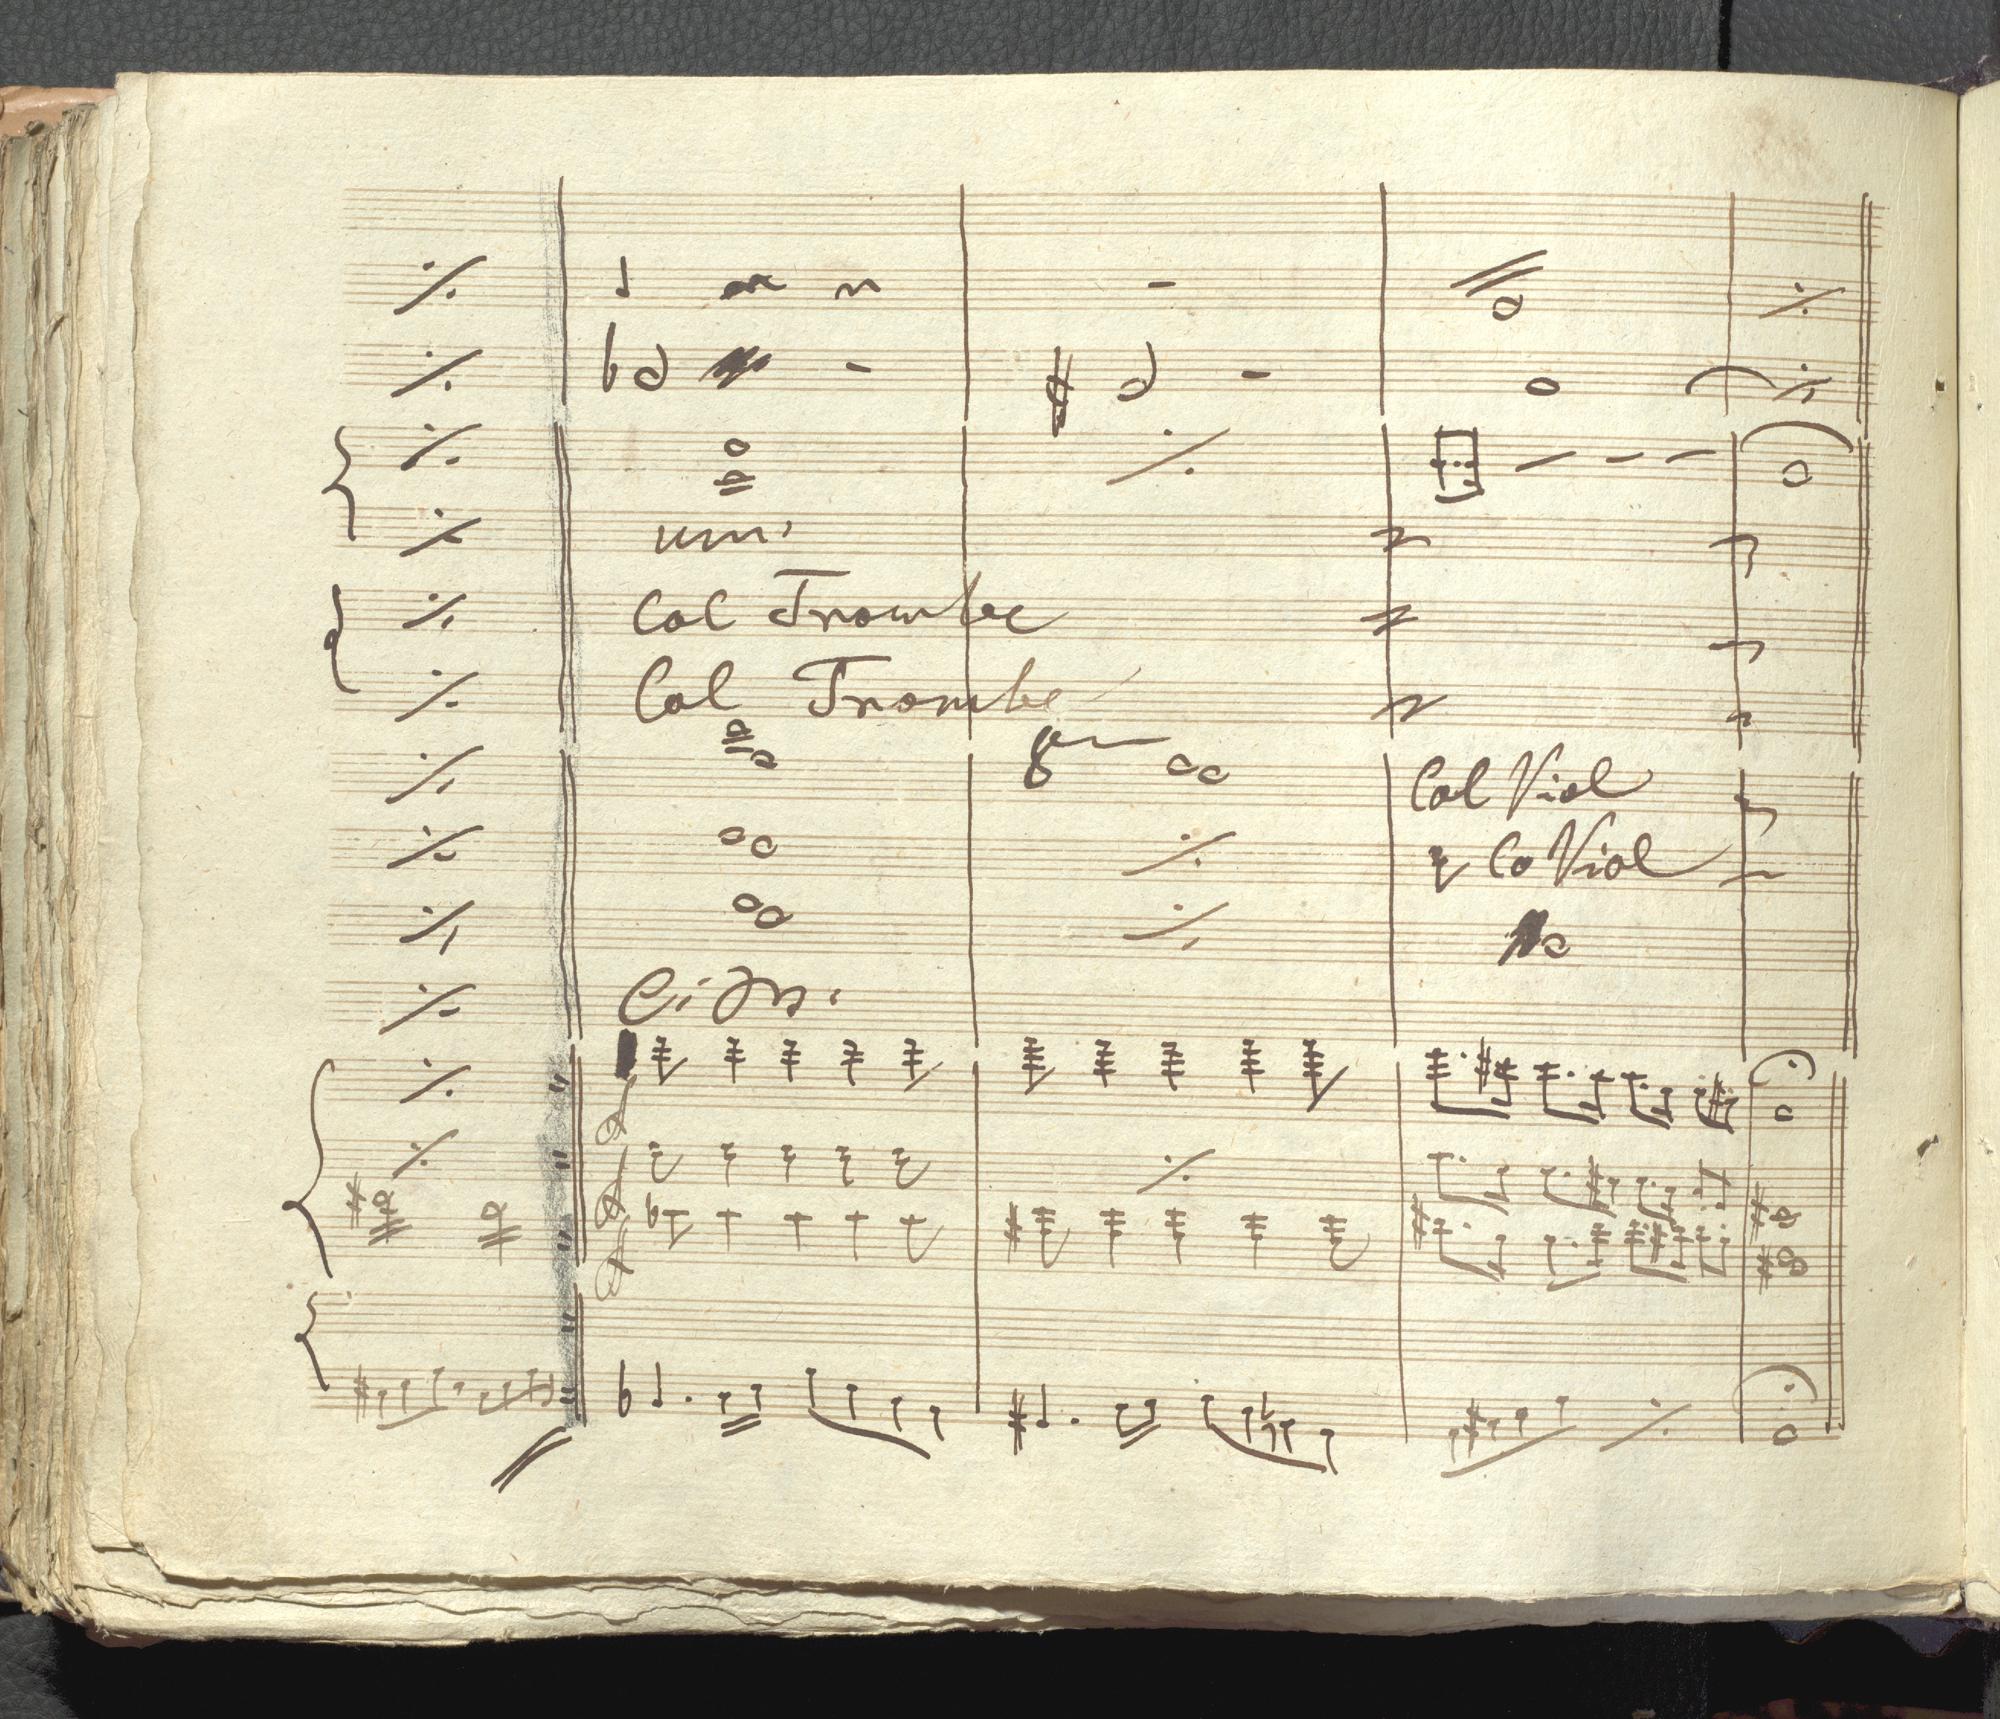 uni:
Col Trombe
Col Trombe
8
Col Viol
Co Viol